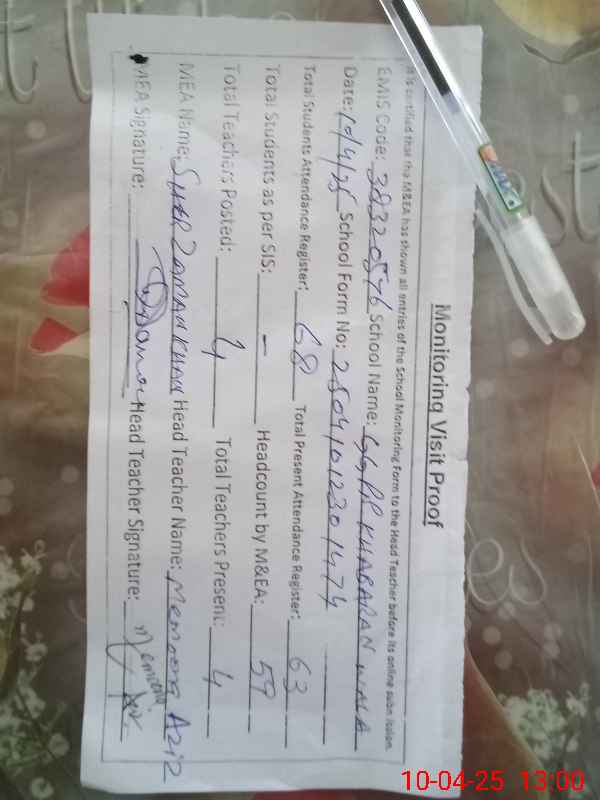 Monitoring Visit Proof
It is certified that the M&EA has shown all entries of the School Monitoring Form to the Head Teacher before its online submission.
EMIS Code: 38320576 School Name: GGPS KHABARAN WALA
Date: 10/4/25 School Form No: 25041012301474
Total Students Attendance Register: 68 Total Present Attendance Register: 63
Total Students as per SIS: - Headcount by M&EA: 59
Total Teachers Posted: 4 Total Teachers Present: 4
MEA Name: SHER ZAMAN KHAN Head Teacher Name: Memoona Aziz
MEA Signature: Head Teacher Signature: Memoona
10-04-25 13:00